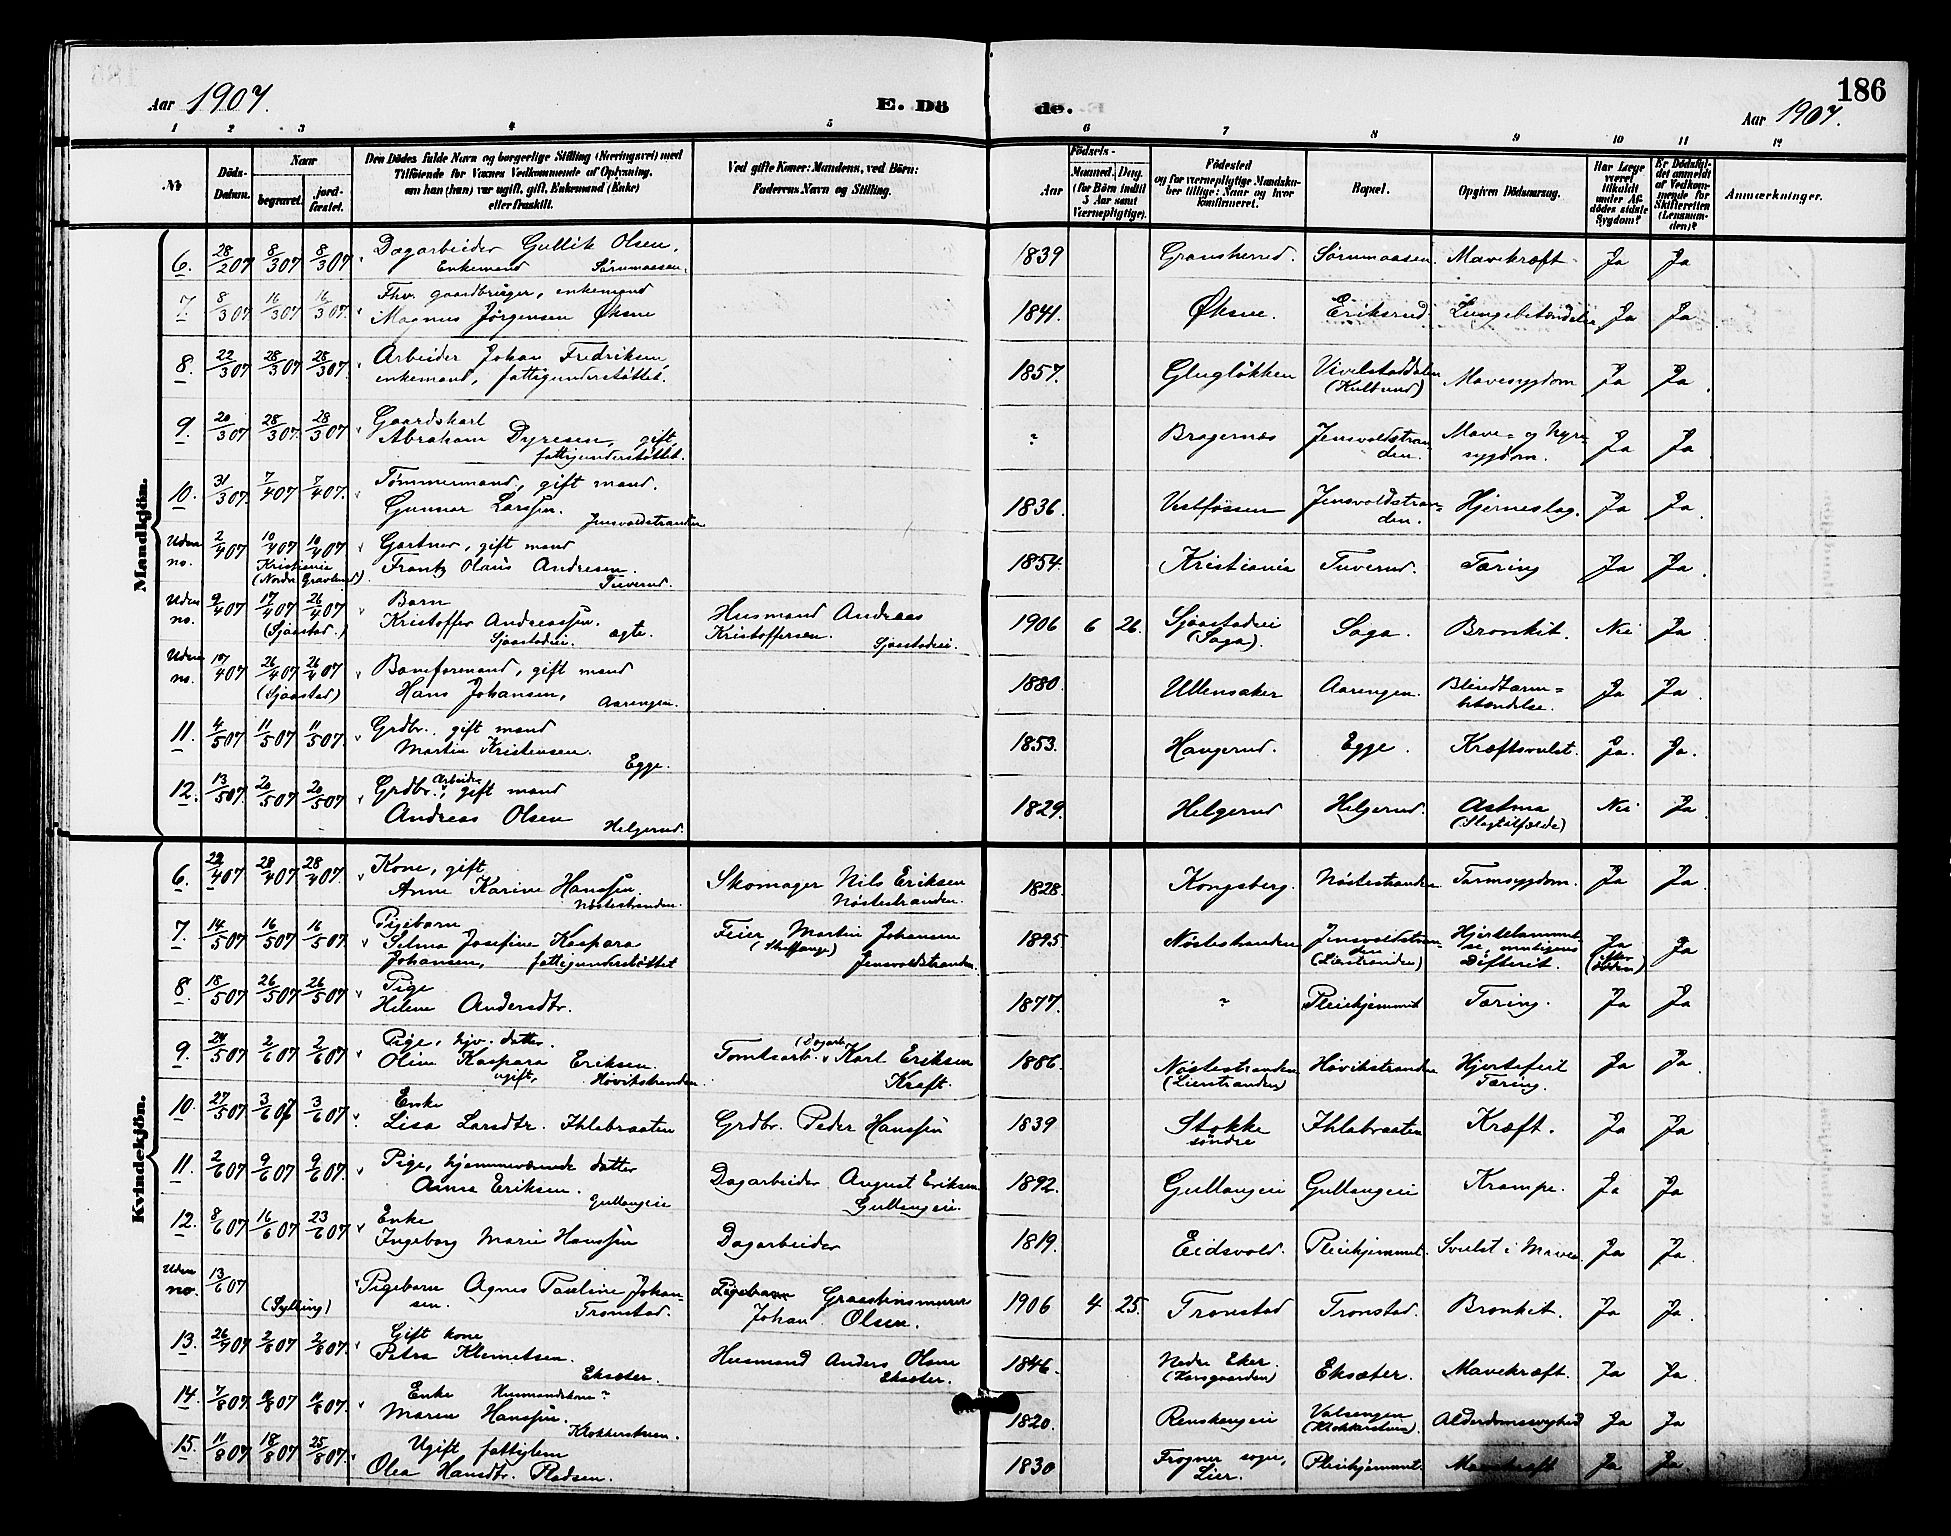 186
Aar 1907.
E. Dö
de.
Aar 1907.
1 2 3 4 5 6 7 8 9 10 11 12
№
Döds-Datum.
Naar
begravet.
jord-fæstet.
Den Dödes fulde Navn og borgerlige Stilling (Næringsvei) med
Tilföiende for Voxnes Vedkommende af Oplysning,
om han (hun) var ugift, gift, Enkemand (Enke)
eller fraskilt.
Ved gifte Koner: Mandens, ved Börn:
Faderens Navn og Stilling.
Aar
Födsels-
Maaned. Dag.
(for Börn indtil
5 Aar samt
Værnepligtige).
Födested
og for værnepligtige Mandska-
ber tillige: Naar og hvor
konfirmeret.
Bopæl.
Opgiven Dödsaarsag.
Har Læge
været
tilkaldt
under Af-
dödes sidste
Sygdom?
Er Dödsfal-
det anmeldt
af Vedkom-
mende for
Skifteretten
(Lensman-
den)?
Anmærkninger.
Mandkjön.
6. 28/2 07 8/3 07 8/3 07 Dagarbeider Gullik Olsen, 1839 Gransherred. Sørumaasen. Mavekræft Ja Ja
Enkemand Sørumaasen.
7. 8/3 07 16/3 07 16/3 07. Fhv. gaardbruger, enkemand
Magnus Jørgensen Øksne 1841. Øksne. Eriksrud. Lungebetændelse Ja Ja.
8. 22/3 07 28/3 07 28/3 07. Arbeider Johan Fredriksen 1857. Glugløkken Vivelstaddalen Mavesygdom Ja Ja.
enkemand, fattigunderstøttet. (Kultrud)
9. 20/3 07 28/3 07. 28/3 07 Gaardskarl
Abraham Dyresen, gift, ? Bragernæs Jensvoldstran- Mave- og Nyre- Ja Ja.
fattigunderstøttet. den. sygdom.
10. 31/3 07 7/4 07 7/4 07. Tømmermand, gift mand.
Gunnar Larssen. Jensvoldstranden 1836. Vestfossen Jensvoldstran- Hjerneslag. Ja Ja.
den.
Uden no. 2/4 07 10/4 07 10/4 07 Gartner, gift mand
Kristiania Frantz Olaus Andresen. 1854. Kristiania Tuverud. Tæring Ja Ja.
(Nordre Gravlund) Tuverud.
Uden no. 9/4 07 17/4 07 26/4 07 Barn
(Sjaastad.) Kristoffer Andreassen. ægte. Husmand Andreas 1906 6 26. Sjaastadeie Saga. Bronkit. Nei Ja
Sjaastadeie. Kristoffersen. Sjaastadeie. (Saga).
Uden no. 17/4 07 26/4 07 26/4 07 Baneformand, gift mand
(Sjaastad) Hans Johansen, Aarengen. 1880. Ullensaker Aarengen. Blindtarm- Ja Ja.
betændelse.
11. 4/5 07 11/5 07 11/5 07. Grdbr. gift mand
Martin Kristensen. Egge. 1853. Haugerud. Egge. Kræftsvulst. Ja. Ja.
12. 13/5 07. 20/5 07 20/5 07 Grdbr., Arbeider gift mand
Andreas Olsen Helgerud. 1829. Helgerud Helgerud. Astma Nei Ja
(Slagtilfælde)
Kvindekjön.
6. 4 07 28/4 07 28/4 07. Kone, gift
Anne Karine Hanssen. Skomager Nils Eriksen 1828. Kongsberg. Nøstestranden Tarmsygdom. Ja Ja.
Nøstestranden. Nøstestranden.
7. 14/5 07 16/5 07 16/5 07 Pigebarn
Selma Josefine Kaspara Feier Martin Johansen 1895 Nøstestranden Jensvoldstran- Hjertelammel- Ja Ja
Johansen, fattigunderstøttet Jensvoldstranden. den (Lierstranden) se, Difterit.
8. 18/5 07 26/5 07 26/5 07 Pige
Helene Andersdtr. 1877. ? Pleiehjemmet Tæring. Ja Ja
9. 5 07 2/6 07 2/6 07 Pige, hjv. datter.
Oline Kaspara Eriksen. Tomtearb. (Dagarb.) Karl Eriksen 1886 Nøstestranden Høvikstranden Hjertefeil Ja Ja.
ugift, Høvikstranden Kraft. (Lierstranden) Tæring.
10. 27/5 07. 3/6 07 3/6 07. Enke
Lisa Larsdtr. Ihlebraaten Grdbr. Peder Hanssen 1839 Stokke Ihlebraaten Kræft. Ja Ja
søndre
11. 2/6 07 9/6 07 9/6 07. Pige, hjemmeværende datter
Anna Eriksen. Dagarbeider August Eriksen 1892. Gullaugeie Gullaugeie Krampe. Ja Ja
Gullaugeie Gullaugeie.
12. 8/6 07 16/6 07 23/6 07 Enke
Ingeborg Marie Hanssen Dagarbeider 1819. Eidsvold. Pleiehjemmet. Svulst i Maven Ja Ja.
Uden no. 13/6 07 (Sylling) Pigebarn Agnes Pauline Johan- Graastensmurer 1906 4 25. Tronstad Tronstad. Bronkit. Ja Ja.
sen. Tronstad Johan Olsen.
13. 26/7 07 2/8 07 2/8 07. Gift kone
Petra Klemetsen. Husmand Anders Olsen 1846. Nedre Eker. Eksæter. Mavekræft. Ja Ja.
Eksæter. Eksæter.
14. 7/8 07 8 07 8 07. Enke Husmandskone?
Maren Hanssen. Klokkerstuen. 1820. Renskaugeie Valsengen Alderdomssvaghed Ja Ja
(Klokkerstuen).
15. 11/8 07 18/8 07 25/8 07. Ugift, fattiglem
Olea Hansdtr. Pladsen. 1830 Frogner sogn, Pleiehjemmet. Mavekræft Ja Ja.
Lier.